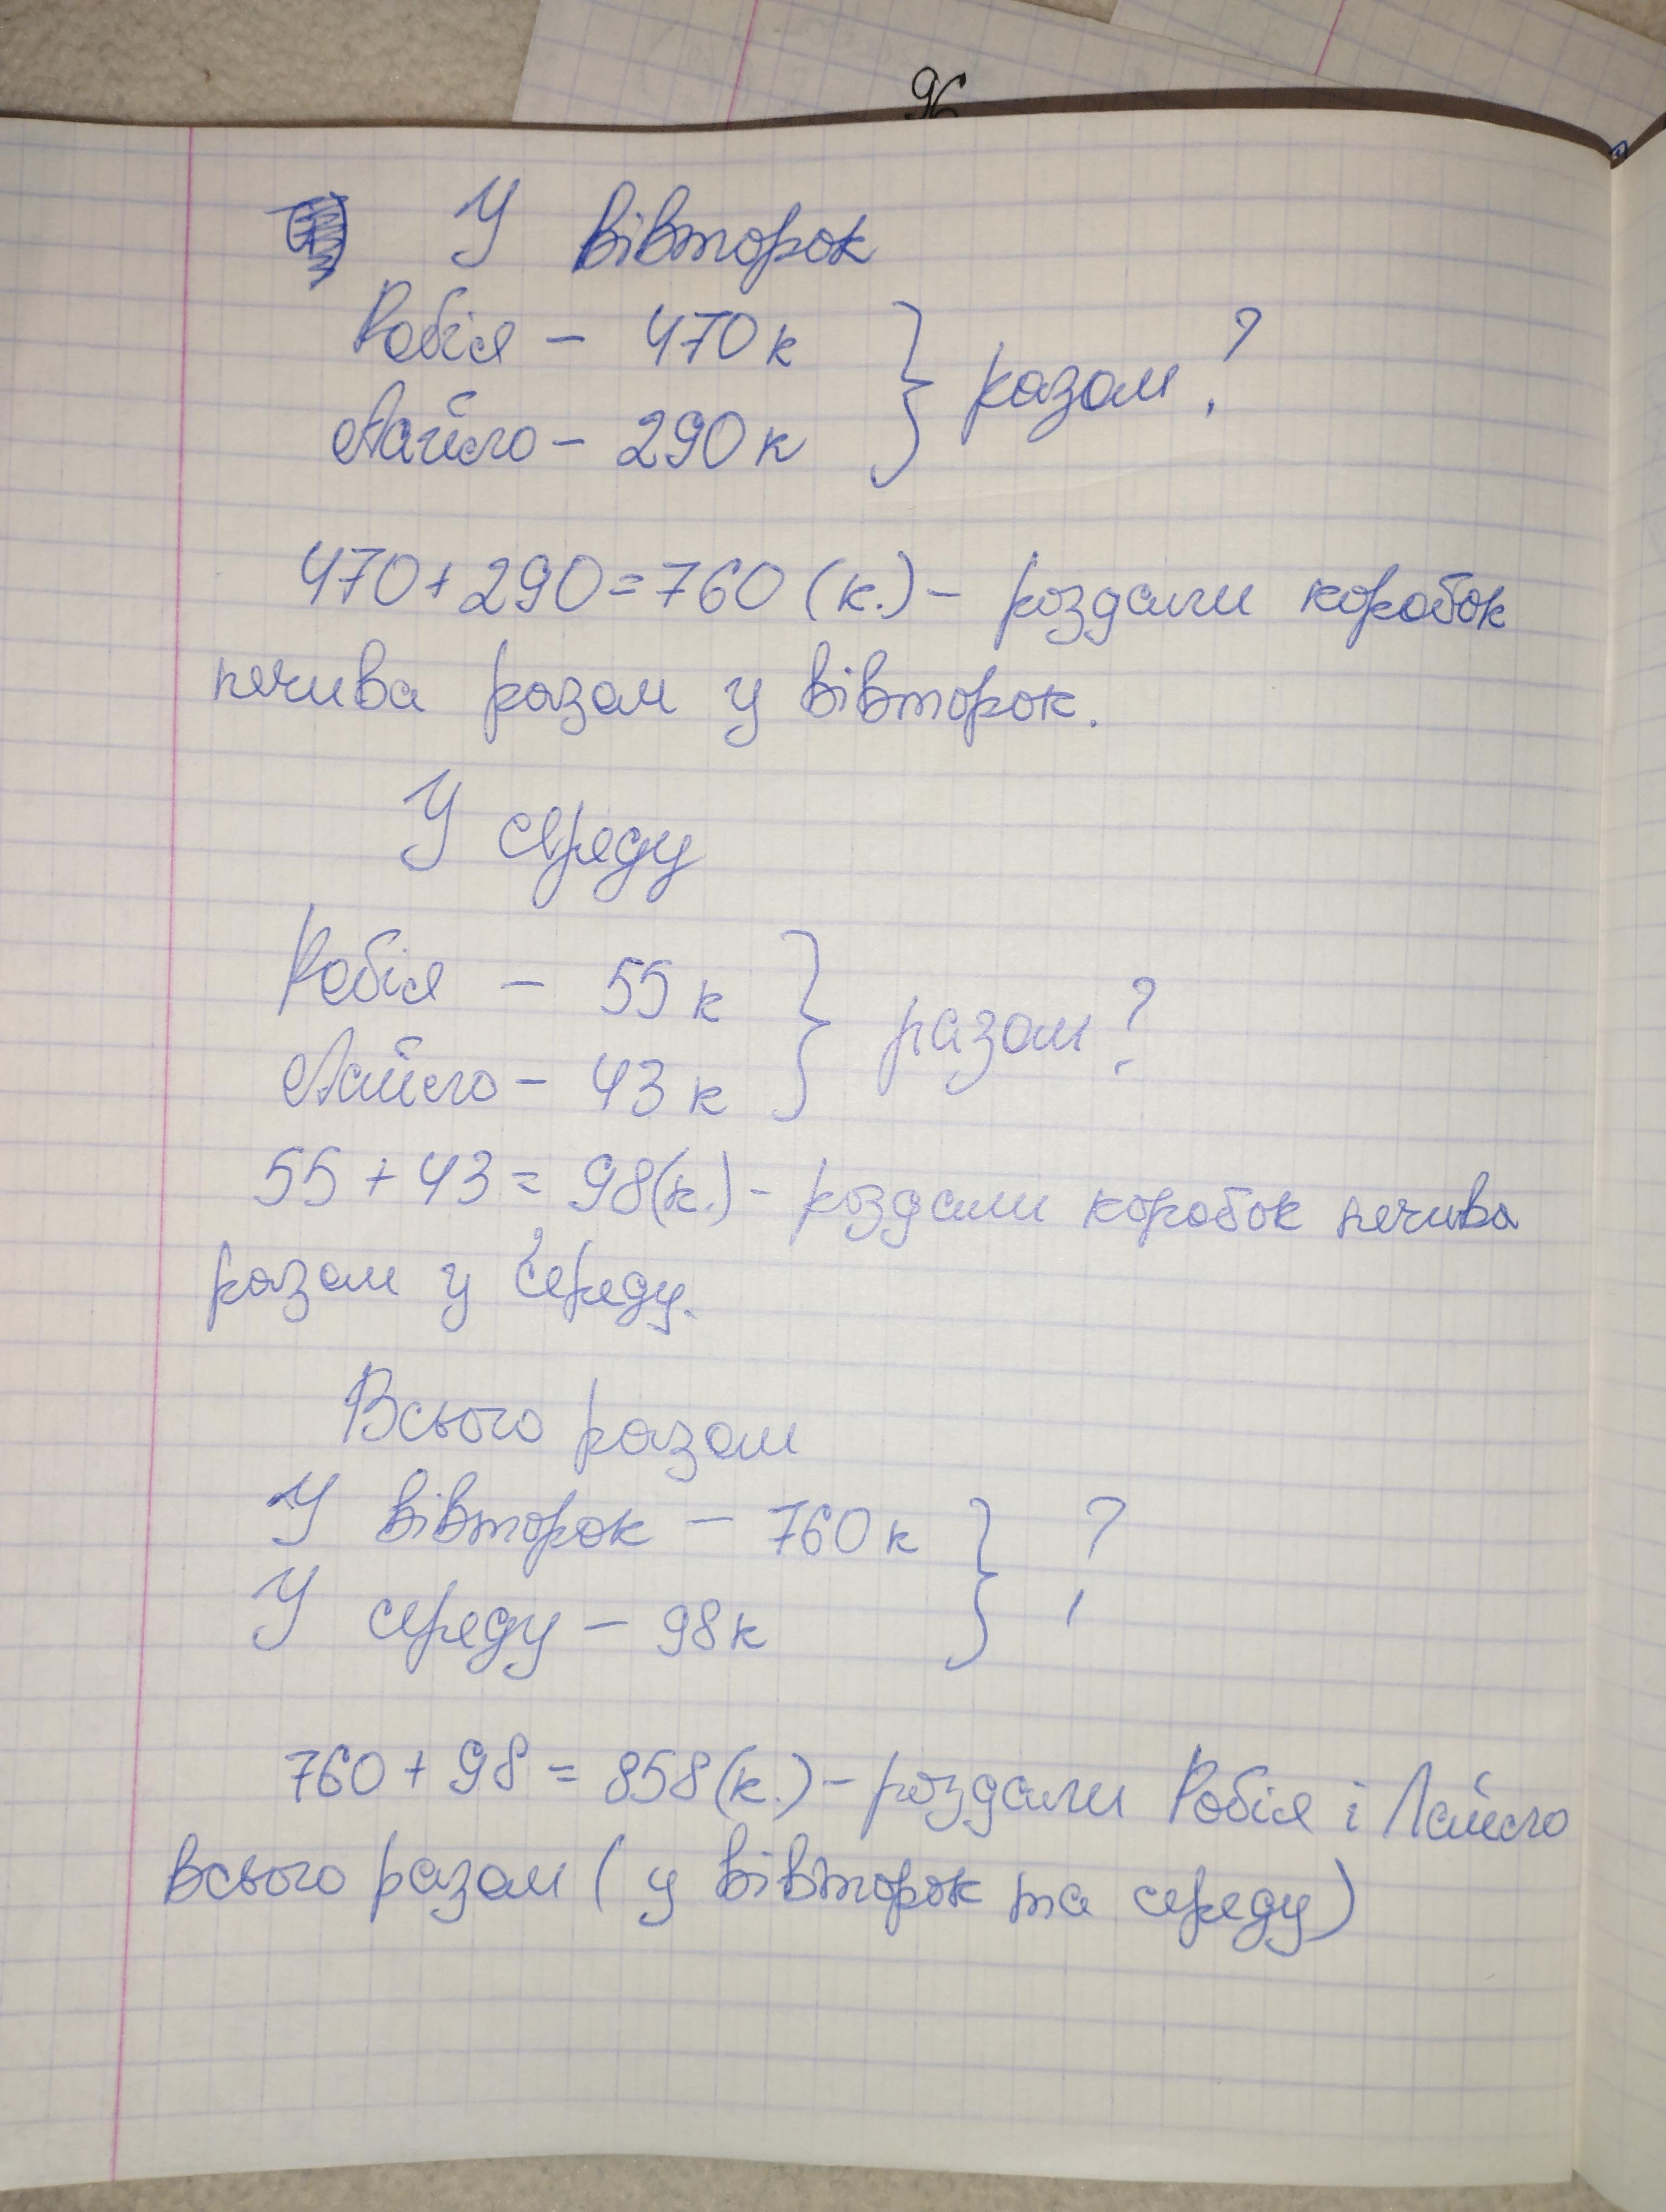 96
У вівторок
Робія - 470 к } разом?
Лайло - 290 к
470+290=760 (к.) - роздали коробок
печива разом у вівторок.
У середу
Робія - 55 к } разом?
Лайло - 43 к
55 + 43 = 98(к.) - роздали коробок печива
разом у середу.
Всього разом
У вівторок - 760 к } ?
У середу - 98 к
760 + 98 = 858(к.) - роздали Робія і Лайло
всього разом (у вівторок та середу)